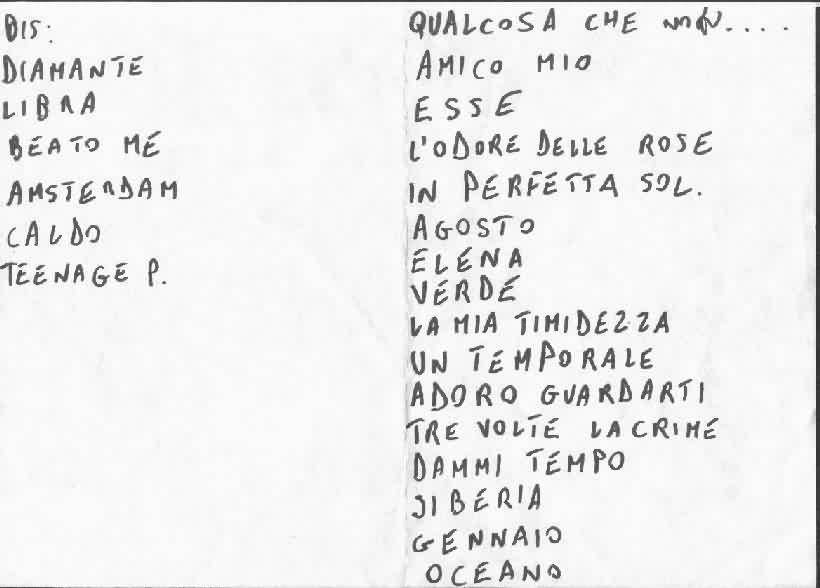 BIS:
DIAMANTE
LIBRA
BEATO ME
AMSTERDAM
CALDO
TEENAGE P.
QUALCOSA CHE NON....
AMICO MIO
ESSE
L'ODORE DELLE ROSE
IN PERFETTA SOL.
AGOSTO
ELENA
VERDE
LA MIA TIMIDEZZA
UN TEMPORALE
ADORO GUARDARTI
TRE VOLTE LACRIME
DAMMI TEMPO
SIBERIA
GENNAIO
OCEANO